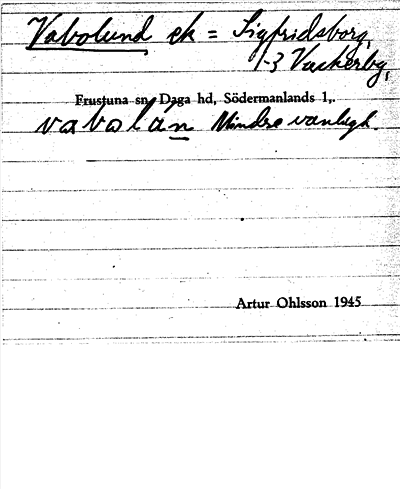 Vabolund ek = Sigfridsborg,
1-3 Vackerby,
Frustuna sn, Daga hd, Södermanlands l,.
vabolan Mindre vanligt.
Artur Ohlsson 1945